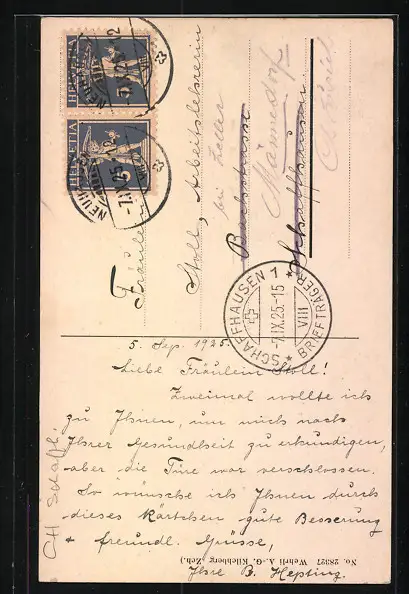 HELVETIA
HELVETIA
-7.IX.25-12
Fräulein
Stoll, Arbeitslehrerin
bei Zeller
Bachstrasse
Männedorf
Schaffhausen
SCHAFFHAUSEN 1
-7.IX.25-15
VIII
BRIEFTRÄGER
5. Sep. 1925.
Liebe Fräulein Stoll!
Zweimal wollte ich
zu Ihnen, um mich nach
Ihrer Gesundheit zu erkundigen,
aber die Türe war verschlossen.
So wünsche ich Ihnen durch
dieses Kärtchen gute Besserung
+ freundl. Grüsse,
Ihre B. Hepting.
No. 28327 Wehrli A.-G. Kilchberg (Zch.)
CH Schaffh.